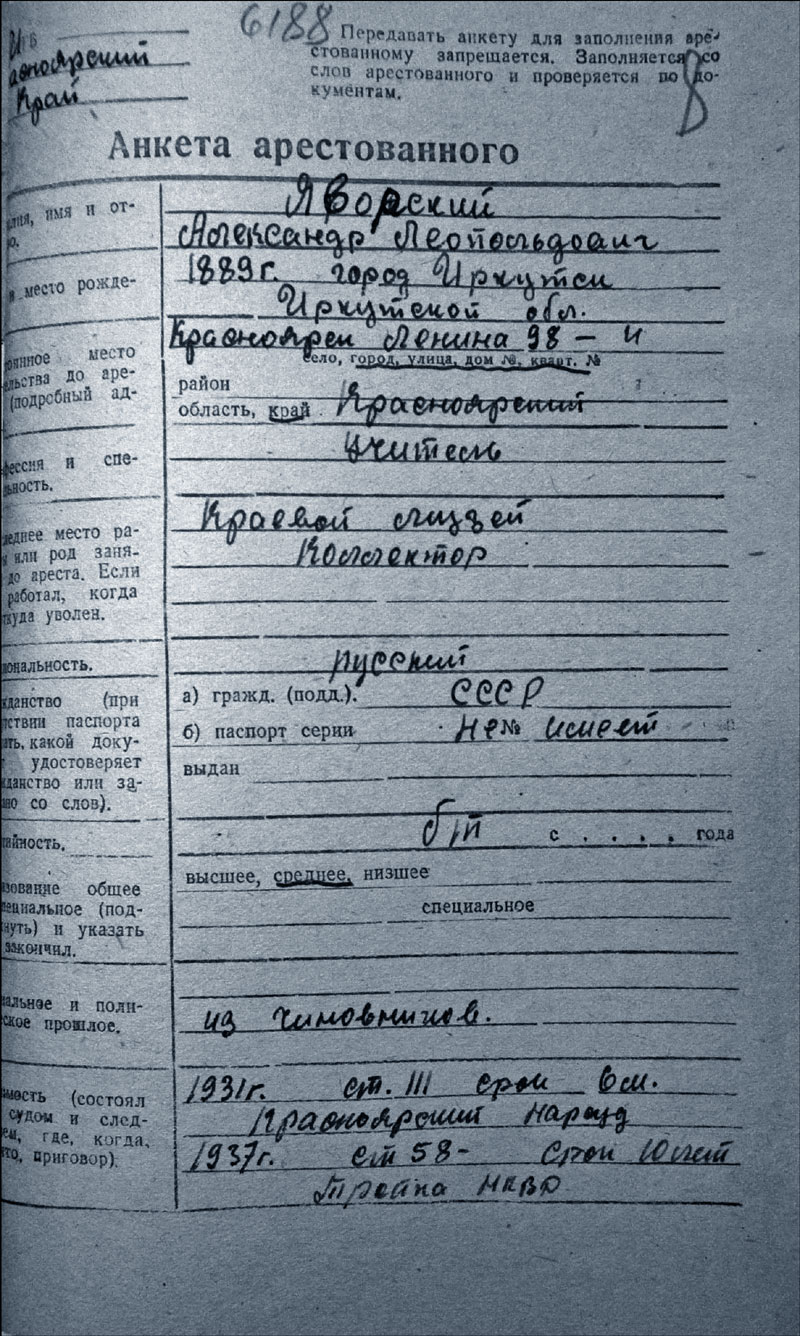 6188
Передавать анкету для заполнения аре-
стованному запрещается. Заполняется со
слов арестованного и проверяется по до-
кументам.
8
асноярский
Край
Анкета арестованного
лия, имя и от-
о.
Яворский
Александр Леопольдович
место рожде-
1889г. город Иркутск
Иркутской обл.
оянное место
ельства до аре-
(подробный ад-
Красноярск Ленина 98 – 4
село, город, улица, дом №, кварт. №
район
область, край Красноярский
фессия и спе-
ьность.
учитель
леднее место ра-
или род заня-
до ареста. Если
работал, когда
ткуда уволен.
Краевой музей
Коллектор
ональность.
русский
жданство (при
тствии паспорта
ать, какой доку-
удостоверяет
жданство или за-
ано со слов).
а) гражд. (подд.). СССР
б) паспорт серии Не № имеет
выдан
тийность.
б/п с . . . . года
зование общее
пециальное (под-
нуть) и указать
закончил.
высшее, среднее, низшее
специальное
альное и поли-
ское прошлое.
из чиновников.
мость (состоял
судом и след-
ем, где, когда,
то, приговор).
1931г. ст. III срок 6 м.
Красноярский Нарсуд
1937г. ст 58- срок 10 лет
Тройка НКВД